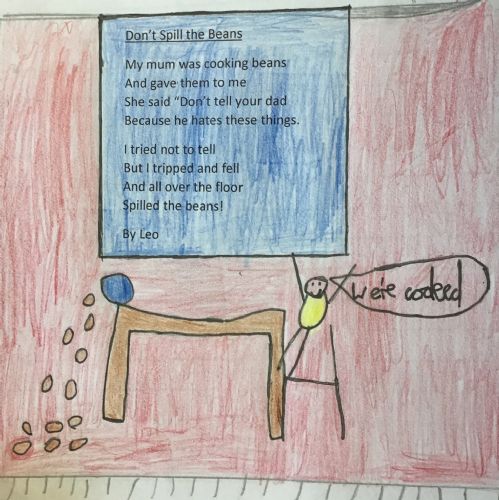 Don't Spill the Beans
My mum was cooking beans
And gave them to me
She said "Don't tell your dad
Because he hates these things.
I tried not to tell
But I tripped and fell
And all over the floor
Spilled the beans!
By Leo
We're cooked